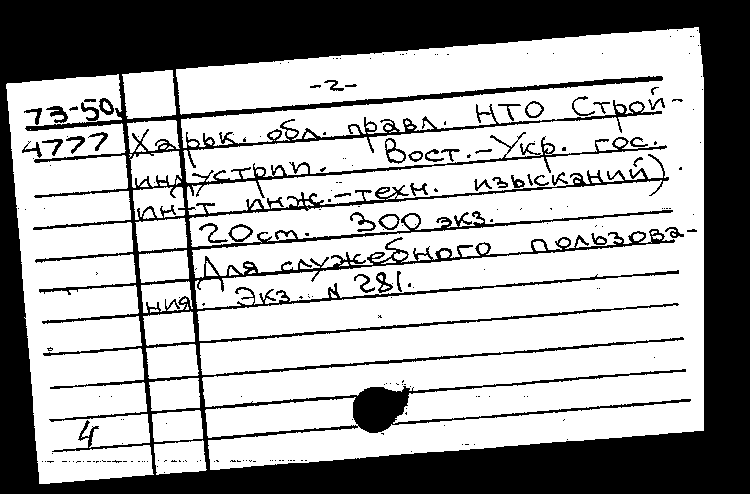 -2-
73-50
4777 Харьк. обл. правл. НТО Строй-
индустрии. Вост.-Укр. гос.
ин-т инж.-техн. изысканий).
20 см. 300 экз.
Для служебного пользова-
ния. Экз. N 281.
4